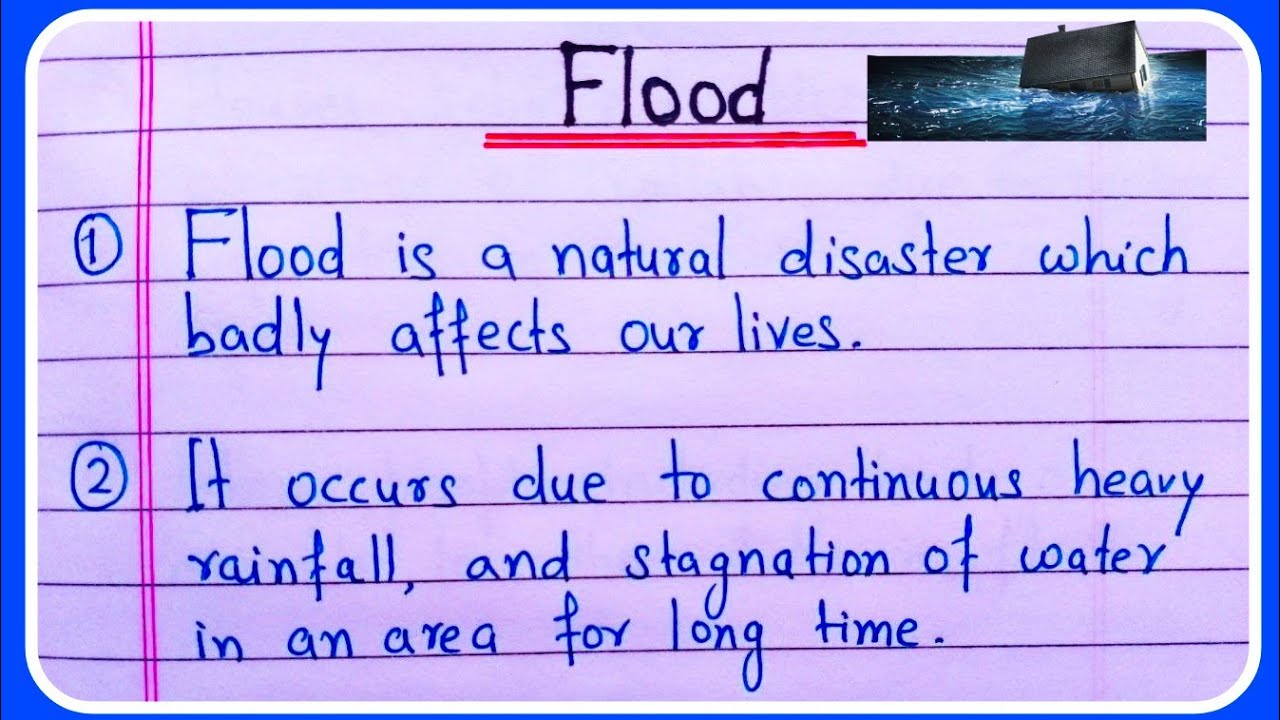 Flood
① Flood is a natural disaster which
badly affects our lives.
② It occurs due to continuous heavy
rainfall, and stagnation of water
in an area for long time.